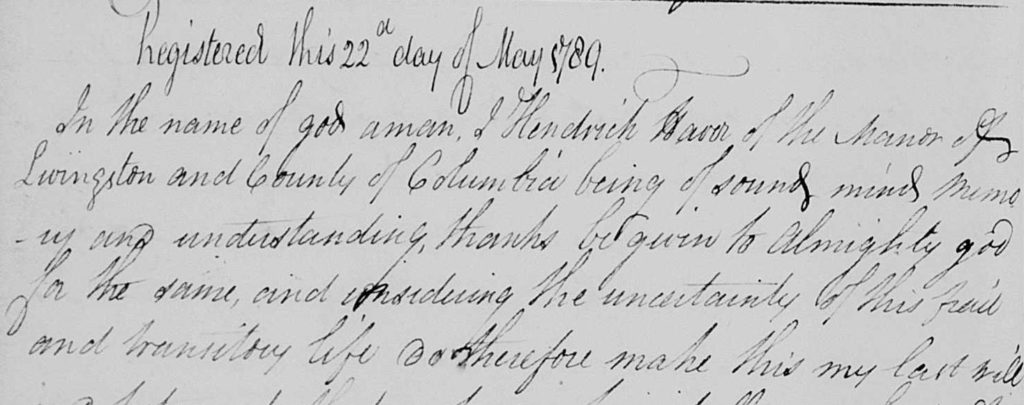 Registered this 22d day of May 1789.
In the name of god aman, I Hendrick Haver of the Manor of
Livingston and County of Columbia being of sound mind memo
-ry and understanding, thanks be given to Almighty god
for the same, and considering the uncertainty of this frail
and transitory life do therefore make this my last will